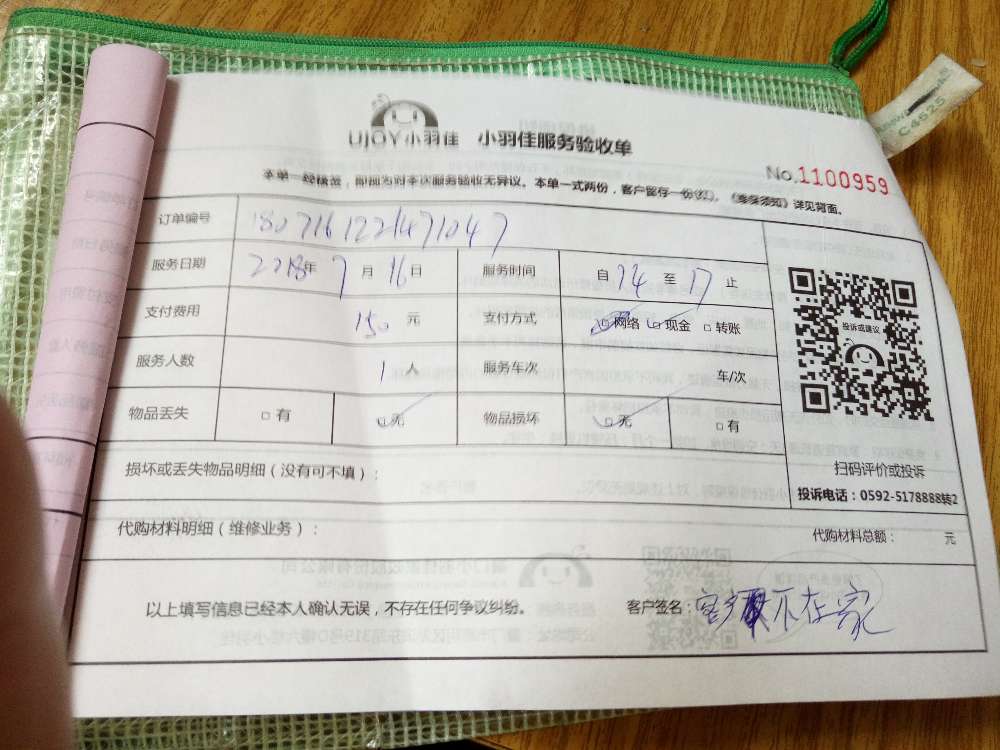 UJOY小羽佳 小羽佳服务验收单
No.1100959
本单一经核签，即视为对本次服务验收无异议。本单一式两份，客户留存一份(红)。《季保须知》详见背面。
订单编号 180716122471047
服务日期 2018年7月16日 服务时间 自14至17止
支付费用 150元 支付方式 □网络 □现金 □转账
服务人数 1人 服务车次 车/次
物品丢失 □有 □无 物品损坏 □无 □有
损坏或丢失物品明细（没有可不填）：
代购材料明细（维修业务）： 代购材料总额： 元
以上填写信息已经本人确认无误，不存在任何争议纠纷。 客户签名：客户不在家
投诉或建议
扫码评价或投诉
投诉电话：0592-5178888转2
C4525